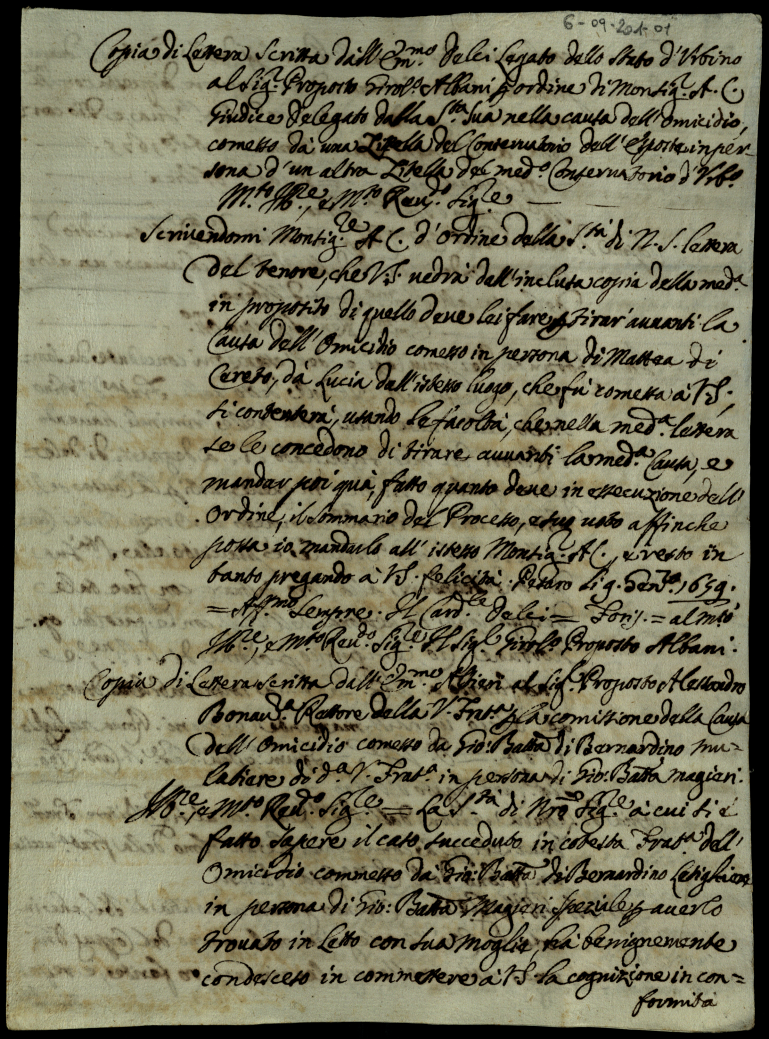 6-09-201-01
Copia di Lettera scritta dall'Em.mo Delci Legato dello Stato d'Urbino
al Sig.r Proposto Girol.o Albani p ordine di Monsig.r A. C.
Giudice delegato dalla S.tà Sua nella causa dell'Omicidio,
comesso dà una Zitella del Conservatorio dell'Esposte in per-
sona d'un altra Zitella del med.o Conservatorio d'Urb.o
M.to Ill.re, e M.to Rev.do Sig.re
Scrivendomi Monsig.re A. C. d'Ordine della S.tà di N. S. lettera
del tenore, che V.S. vedrà dall'inclusa copia della med.a
in proposito di quello deve lei fare p tirar' avanti la
Causa dell'Omicidio comesso in persona di Mattea di
Cereto, dà Lucia dall'istesso luogo, che fù comessa à V.S.,
si contenterà, usando le facoltà, che nella med.a lettera
se le concedono di tirare avvanti la med.a Causa, e
mandar poi quà, fatto quanto deve in essecuzione dell'
Ordine, il sommario del Processo, e suo voto affinche
possa io mandarlo all'istesso Monsig.r A C., e resto in
tanto pregando à V.S. felicità. Pesaro li 9. Gen.ro 1659.
= Aff.mo sempre. Il Card.le Delci = Fori. = al m.to
Ill.re, e M.to Rev.do Sig.re Il Sig.r Girol.o Proposto Albani.
Copia di Lettera scritta dall'Em.mo Altieri al Sig.r Proposto Alessandro
Bonav.a Rettore della V. Frat.a p la comissione della Causa
dell'Omicidio comesso da Gio: Batta di Bernardino mu=
lattiere di d.a V. Frat.a in persona di Gio: Batta magieri.
Ill.re, e M.to Rev.do Sig.re = La S.tà di Nro Sig.re à cui si è
fatto sapere il caso succeduto in cotesta Frat.a dell'
Omicidio commesso dà Gio: Batta di Bernardino
in persona di Gio: Batta Magieri speziale p averlo
trovato in Letto con sua moglie, hà benignemente
condesceso in commettere à V.S. la cognizione in con=
formità